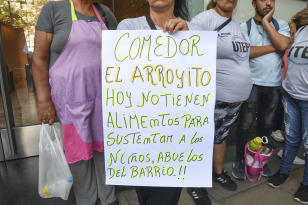 COMEDOR
EL ARROYITO
HOY NO TIENEN
ALIMENTOS PARA
SUSTENTAR A LOS
NIÑOS, ABUELOS
DEL BARRIO.!!
UTEP